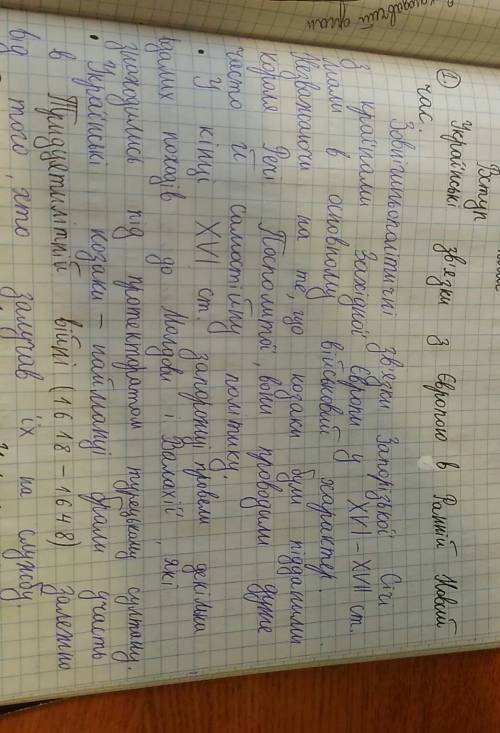 Вступ
① Українські зв'язки з Європою в Ранній Новий
час.
Зовнішньополітичні зв'язки Запорізької Січі
з країнами Західної Європи у XVI – XVII ст.
мали в основному військовий характер.
Незважаючи на те, що козаки були підданими
короля Речі Посполитої, вони проводили дуже
часто й самостійну політику.
• У кінці XVI ст. запорожці провели декілька
вдалих походів до Молдови і Валахії, які
знаходились під протекторатом турецького султану.
• Українські козаки – найманці брали участь
в Тридцятилітній війні (1618 – 1648) залежно
від того, хто залучав їх на службу.